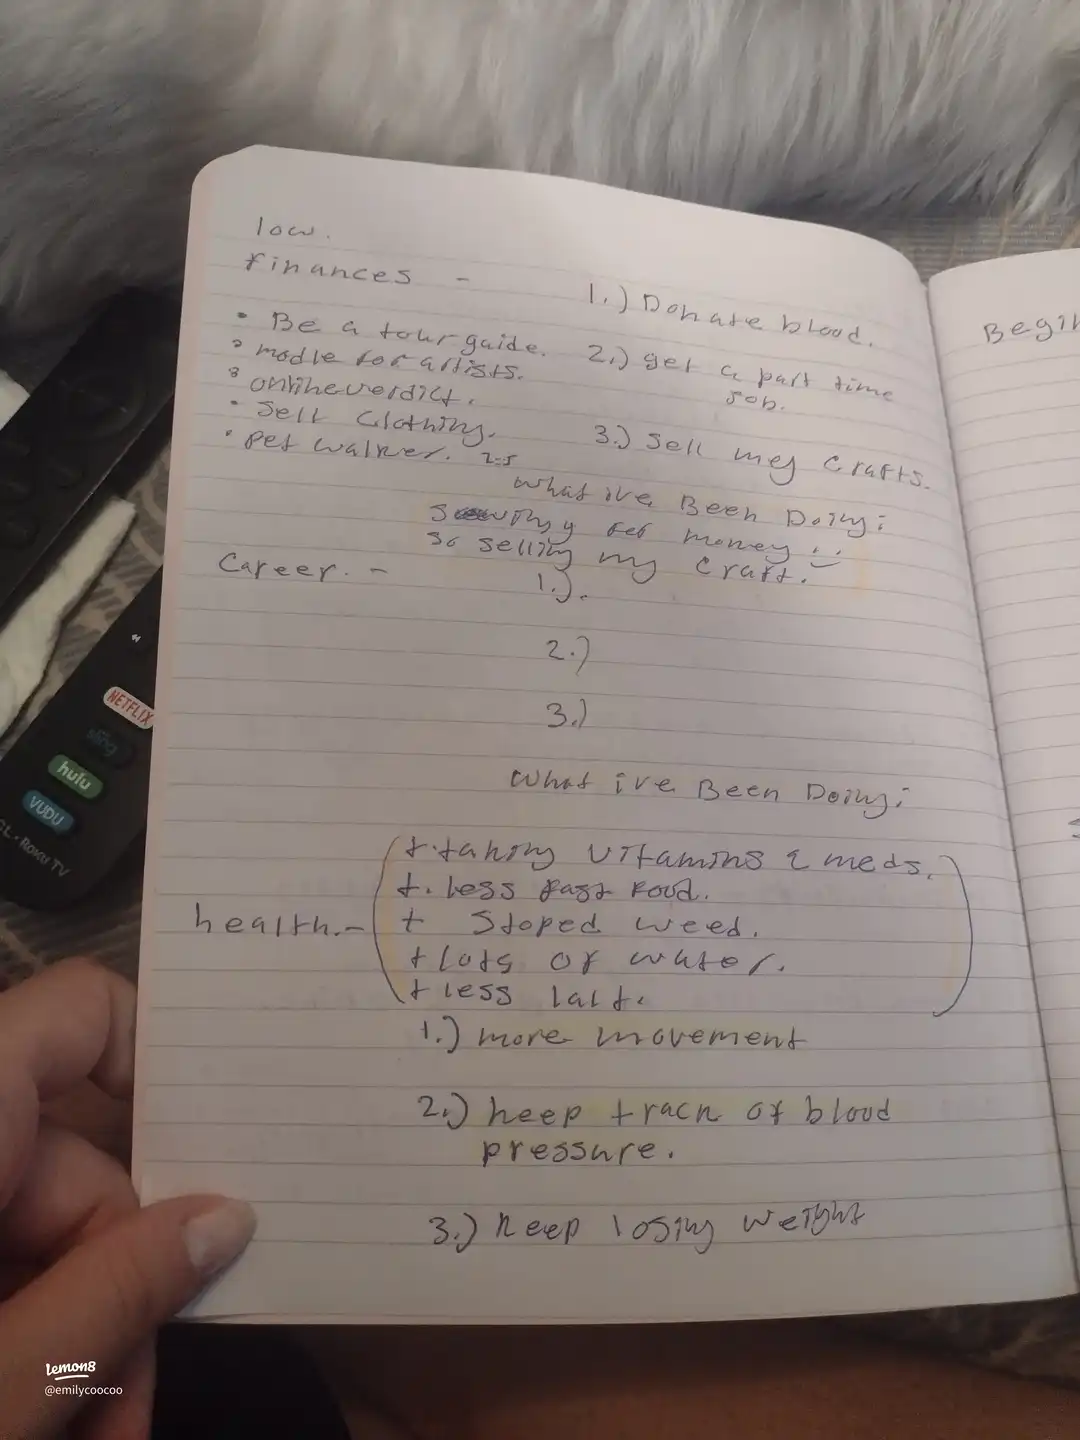 low.
finances -
1.) Donate blood.
• Be a tour guide.
2.) get a part time
job.
• modle for artists.
• onlineverdict.
• Sell Clothing.
3.) Sell my Crafts.
• Pet walker.
what ive Been Doing:
get money
so selling my craft.
Career. -
1.).
2.)
3.)
What ive Been Doing:
health. -
+. taking vitamins & meds.
+. less fast food.
+ Stoped weed.
+ lots of water.
+ less
1.) more movement
2.) keep track of blood
pressure.
3.) keep losing weight
Begin
NETFLIX
sling
hulu
VUDU
TCL • Roku TV
lemon8
@emilycoocoo